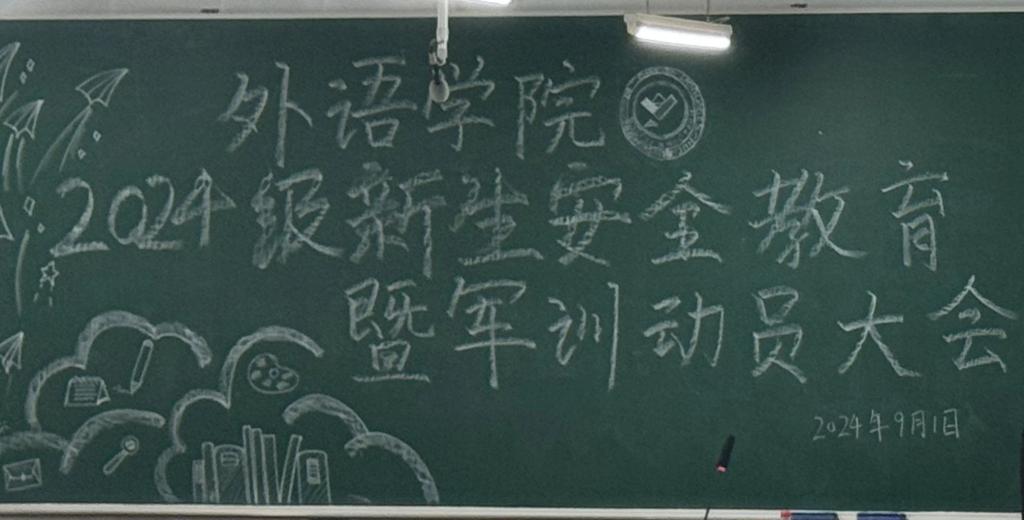 外语学院
2024级新生安全教育
暨军训动员大会
2024年9月1日